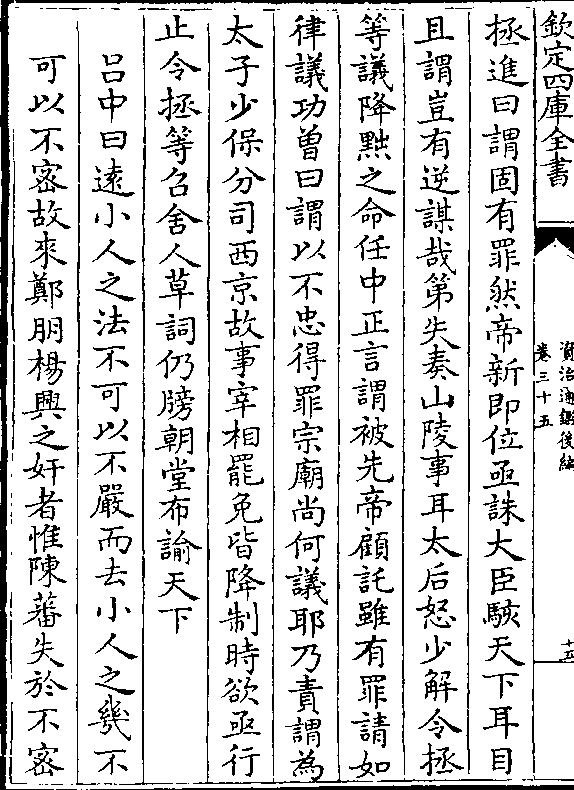 欽定四庫全書
資治通鑑後編
卷三十五
拯進曰謂固有罪然帝新即位亟誅大臣駭天下耳目
且謂豈有逆謀哉第失奏山陵事耳太后怒少解令拯
等議降黜之命任中正言謂被先帝顧託雖有罪請如
律議功曾曰謂以不忠得罪宗廟尚何議耶乃責謂為
太子少保分司西京故事宰相罷免皆降制時欲亟行
止令拯等召舍人草詞仍牓朝堂布諭天下
呂中曰遠小人之法不可以不嚴而去小人之幾不
可以不密故來鄭朋楊興之奸者惟陳蕃失於不密